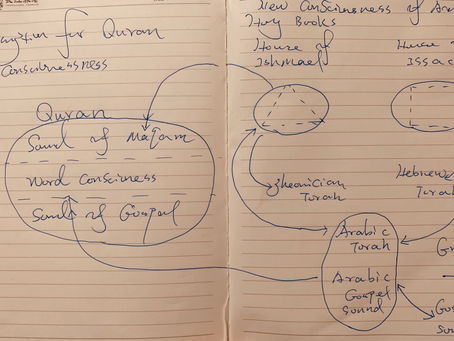 for Quran
Consciousness
Quran
Sound of Maqam
Word Consciness
Sound of Gospel
New Consciousness of
Holy Books
House of
Ishmael
House
Issac
Torah
Hebrew
Torah
Arabic
Torah
Arabic
Gospel
Sound